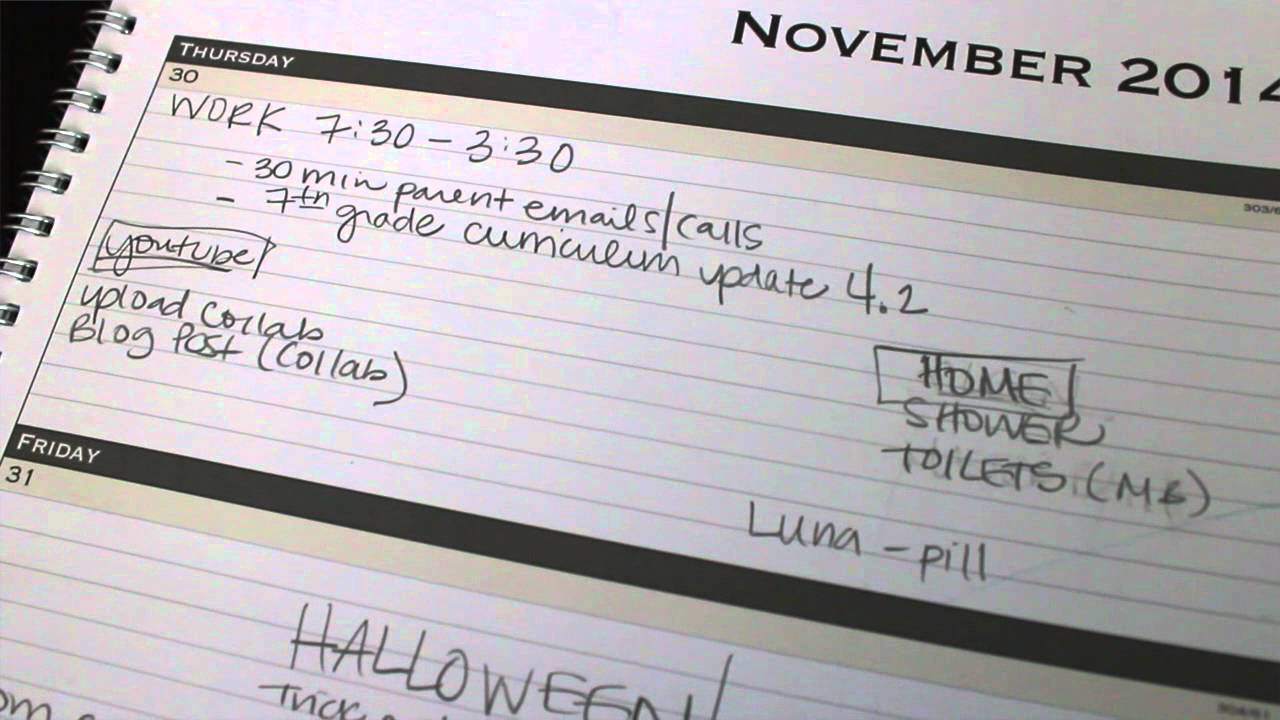 NOVEMBER 2014
THURSDAY
30
WORK 7:30 - 3:30
- 30 min parent emails/calls
- 7th grade curriculum update 4.2
youtube
upload collab
Blog Post (Collab)
HOME
SHOWER
TOILETS (MB)
Luna - pill
FRIDAY
31
HALLOWEEN!